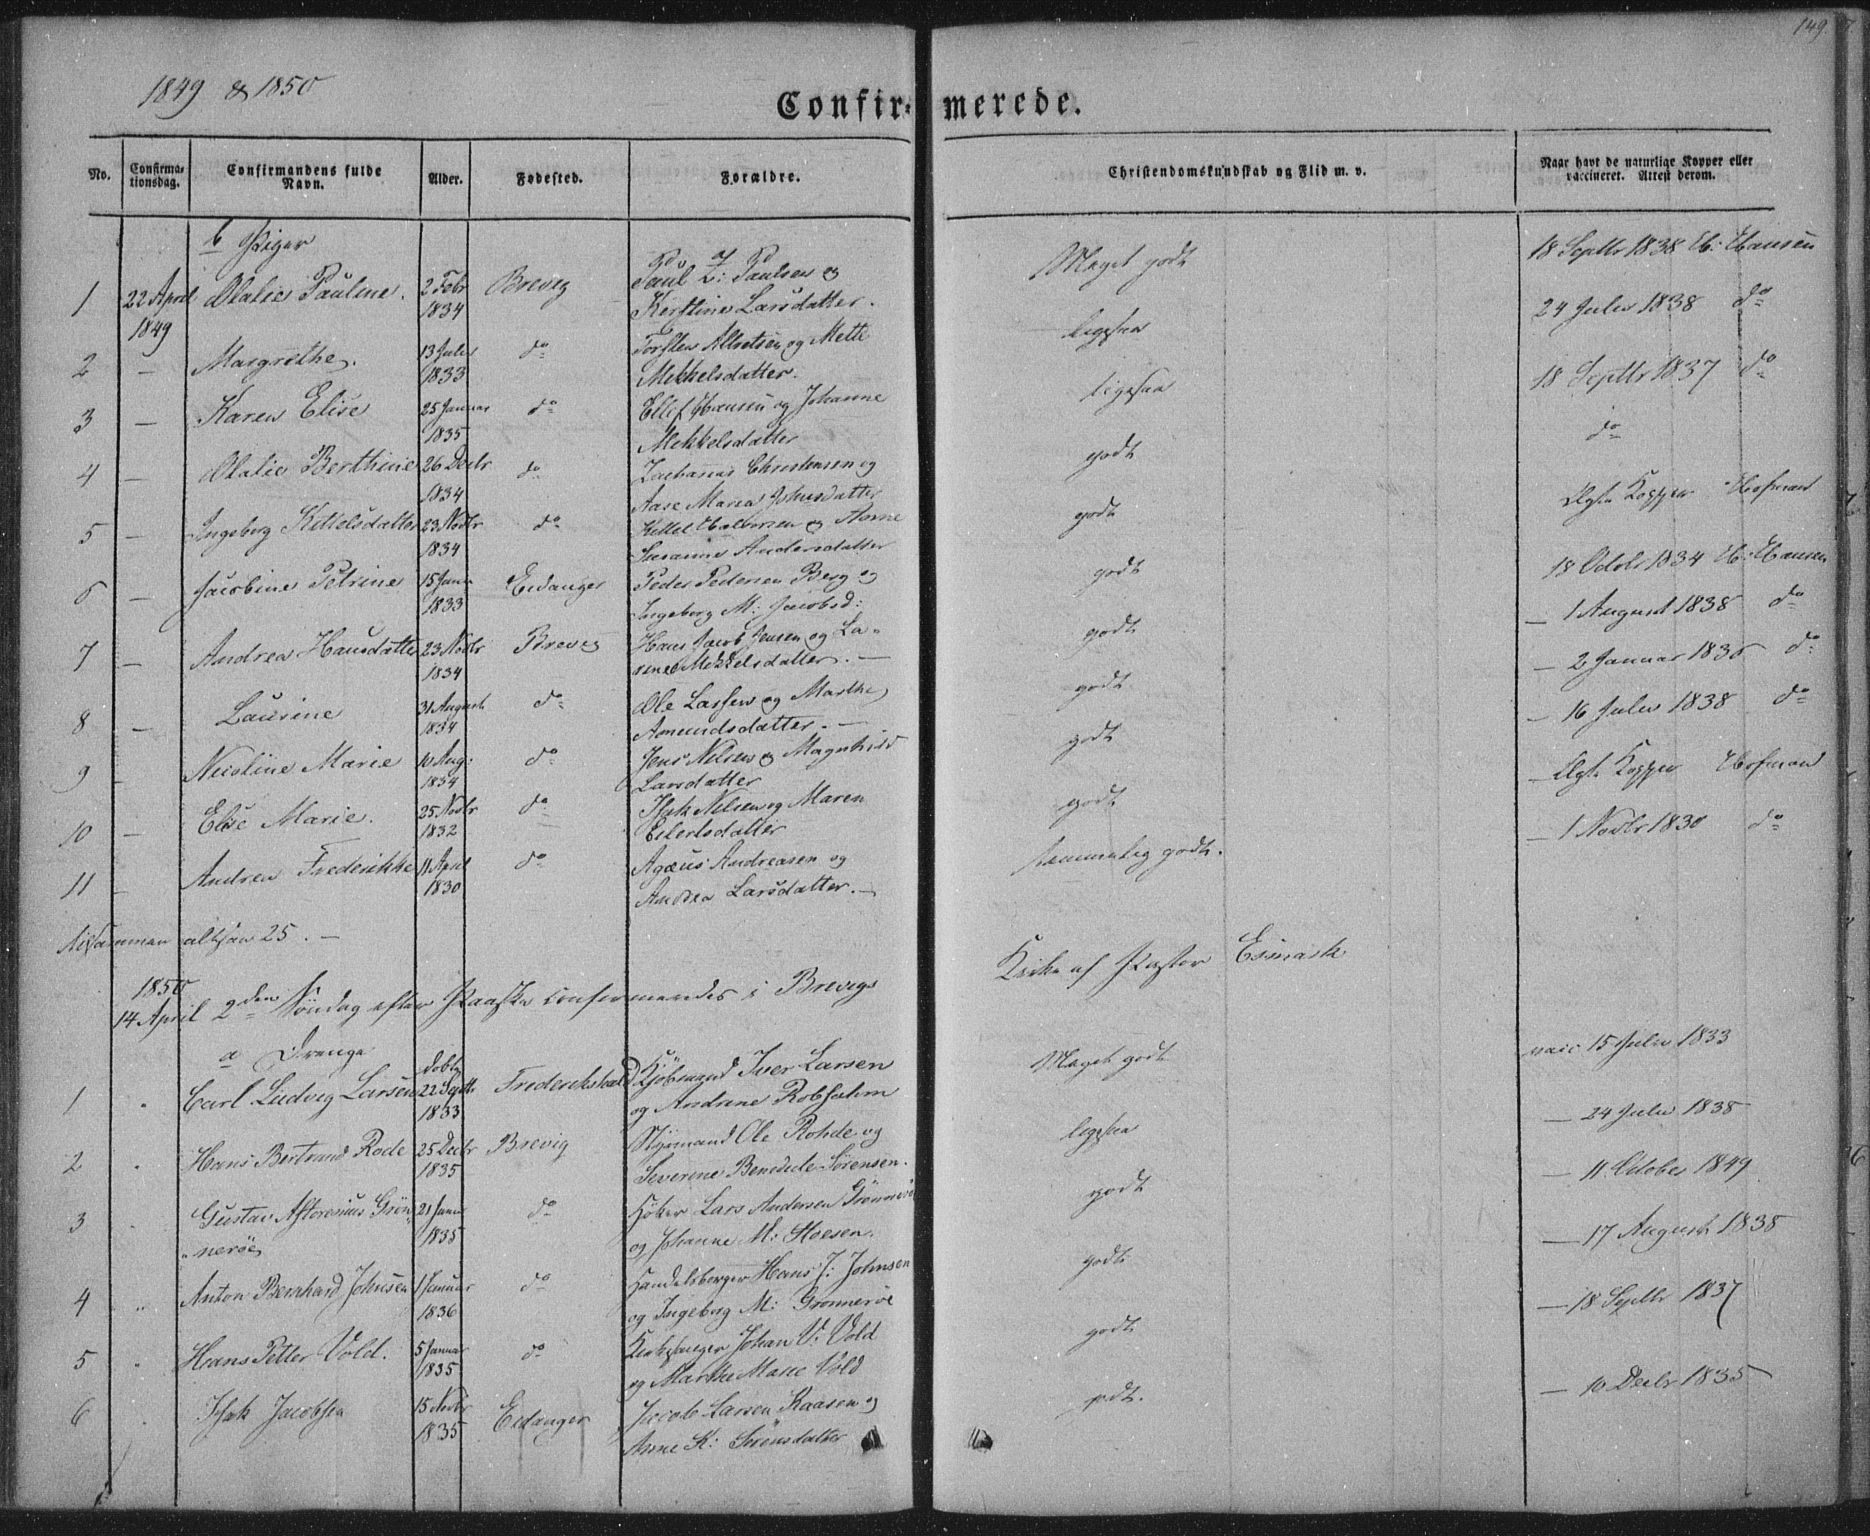 149.
1849 & 1850
Confirmerede.
No. Confirmationsdag. Confirmandens fulde Navn. Alder. Fødested. Forældre. Christendomskundskab og Flid m. v. Naar havt de naturlige Kopper eller vaccineret. Attest derom.
b Piger
1 22 April 1849 Olalie Pauline. 2 Febr 1834 Brevig Paul Z: Paulsen og Kerstine Larsdatter. Meget godt 18 Septbr 1838 H: Hansen
2 — Margrethe. 13 Julij 1833 do Torsten Alletsen og Mette Mekkelsdatter. ligesaa 24 Julij 1838 do
3 — Karen Elise 25 Januar 1835 do Ellef Hansen og Johanne Mekkelsdatter ligesaa 18 Septbr 1837 do
4 — Olalie Berthine 26 Decbr 1834 do Zacharias Christensen og Aase Maria Johnsdatter godt do
5 — Ingeborg Kittelsdatter 23 Novbr 1834 do Kittel Halvorsen og Anne Susanne Andersdatter godt Ægte Kopper Hofman
6 — Jacobine Petrine 15 Janr 1833 Eidanger Peder Pedersen Berg og Ingeborg M: Jacobsd: godt 18 Octobr 1834 H: Hansen
7 — Andrea Hansdatter 23 Novbr 1834 Brevig Hans Jacob Jensen og Larine Mekkelsdatter. — godt — 1 August 1838 do
8 — Laurine 31 August 1834 do Ole Larsen og Marthe Amundsdatter. — godt — 2 Januar 1836 do
9 — Nicoline Marie 10 Aug: 1834 do Jens Nilsen og Magnhild Larsdatter godt — 16 Julij 1838 do
10 — Elise Marie. 25 Novbr 1832 do Isak Nilsen og Maren Eilertsdatter godt — Ægte Kopper Hofman
11 — Andrea Frederikke 11 April 1830 do Agæus Andreasen og Andrea Larsdatter. — temmelig godt. — 1 Novbr 1830 do
Tilsammen altsaa 25. —
1850
14 April 2den Søndag efter Paaske confirmeredes i Brevigs Kirke af Pastor Esmark
a Drenge
1 " Carl Ludvig Larsen døbt 22 Septbr 1833 Frederikshald Kjøbmand Iver Larsen og Andrine Robsahm Meget godt vacc 15 Julij 1833
2 " Hans Bertrand Rode 25 Decbr 1835 Brevig Styrmand Ole Rohde og Severine Benedicte Sørensen. ligesaa — 24 Julij 1838
3 " Gustav Astorenius Grønnerøe 21 Janr 1835 do Høker Lars Andersen Grønnerøe og Johanne M: Hoesen. godt — 11 October 1849
4 " Anton Bernhard Johnsen 1 Januar 1836 do Handelsborger Hans J: Johnsen og Ingeborg M: Grønnerøe godt — 17 August 1838
5 " Hans Petter Vold. 5 Januar 1835 do Kirkesanger Johan V: Vold og Marthe Marie Vold godt — 18 Septbr 1837
6 " Isak Jacobsen 15 Novbr 1835 Eidanger Jacob Larsen Raasen og Anne K: Sørensdatter godt. — 10 Decbr 1835